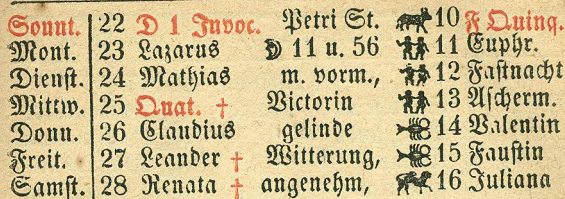 Sonnt. 22 D 1 Invoc. Petri St. 10 F Quinq.
Mont. 23 Lazarus ☽ 11 u. 56 11 Euphr.
Dienst. 24 Mathias m. vorm., 12 Fastnacht
Mittw. 25 Quat. † Victorin 13 Ascherm.
Donn. 26 Claudius gelinde 14 Valentin
Freit. 27 Leander † Witterung, 15 Faustin
Samst. 28 Renata † angenehm, 16 Juliana